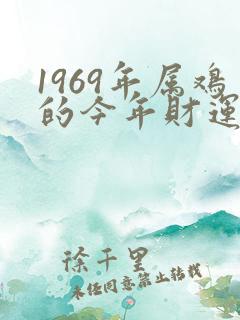 1969年属鸡
的今年财運
徐千里
未经同意禁止转载